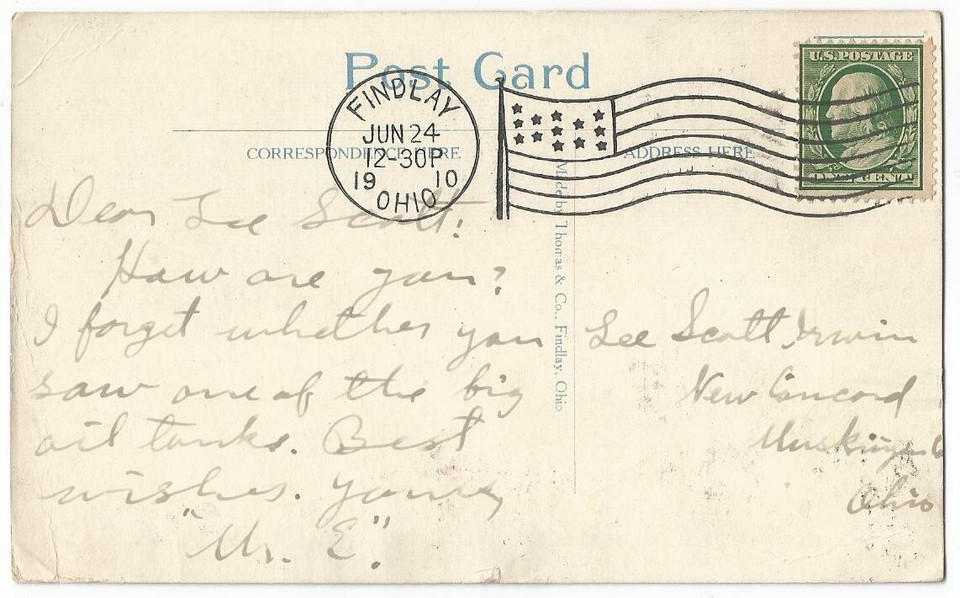 Post Card
CORRESPONDENCE HERE
ADDRESS HERE
FINDLAY
JUN 24
12-30P
19 10
OHIO
U.S. POSTAGE
Made by Thomas & Co., Findlay, Ohio
Dear Lee Scott:
How are you?
I forget whether you
saw one of the big
oil tanks. Best
wishes. Yours,
"Mr. E".
Lee Scott Irwin
New Concord
Ohio